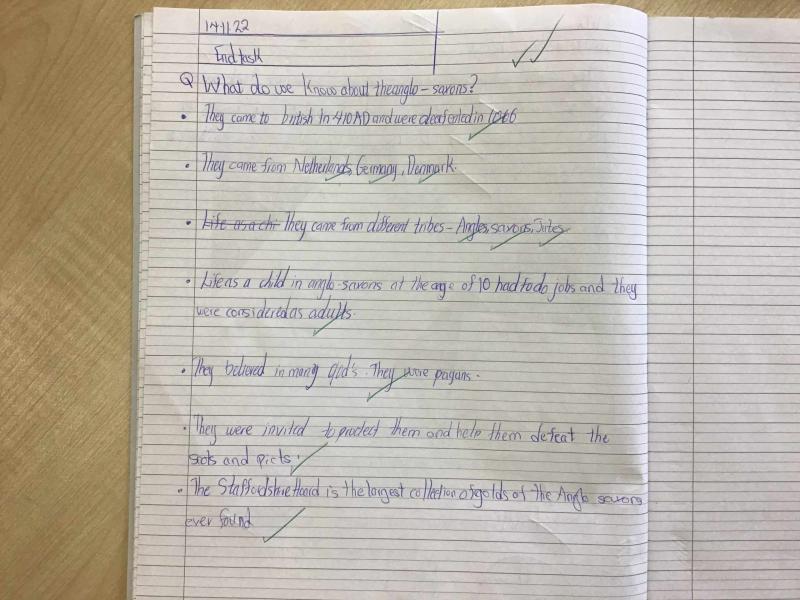 14.11.22
End task
Q What do we know about the anglo-saxons?
• They came to british in 410AD and were deafeated in 1066
• They came from Netherlands, Germany, Denmark.
• Life as a chi They came from different tribes - Angles, saxons, Jutes
• Life as a child in anglo-saxons at the age of 10 had to do jobs and they
were considered as adults.
• They believed in many god's. They were pagans.
• They were invited to protect them and help them defeat the
scots and picts.
• The Staffordshire Hoard is the largest collection of golds of the Anglo saxons
ever found